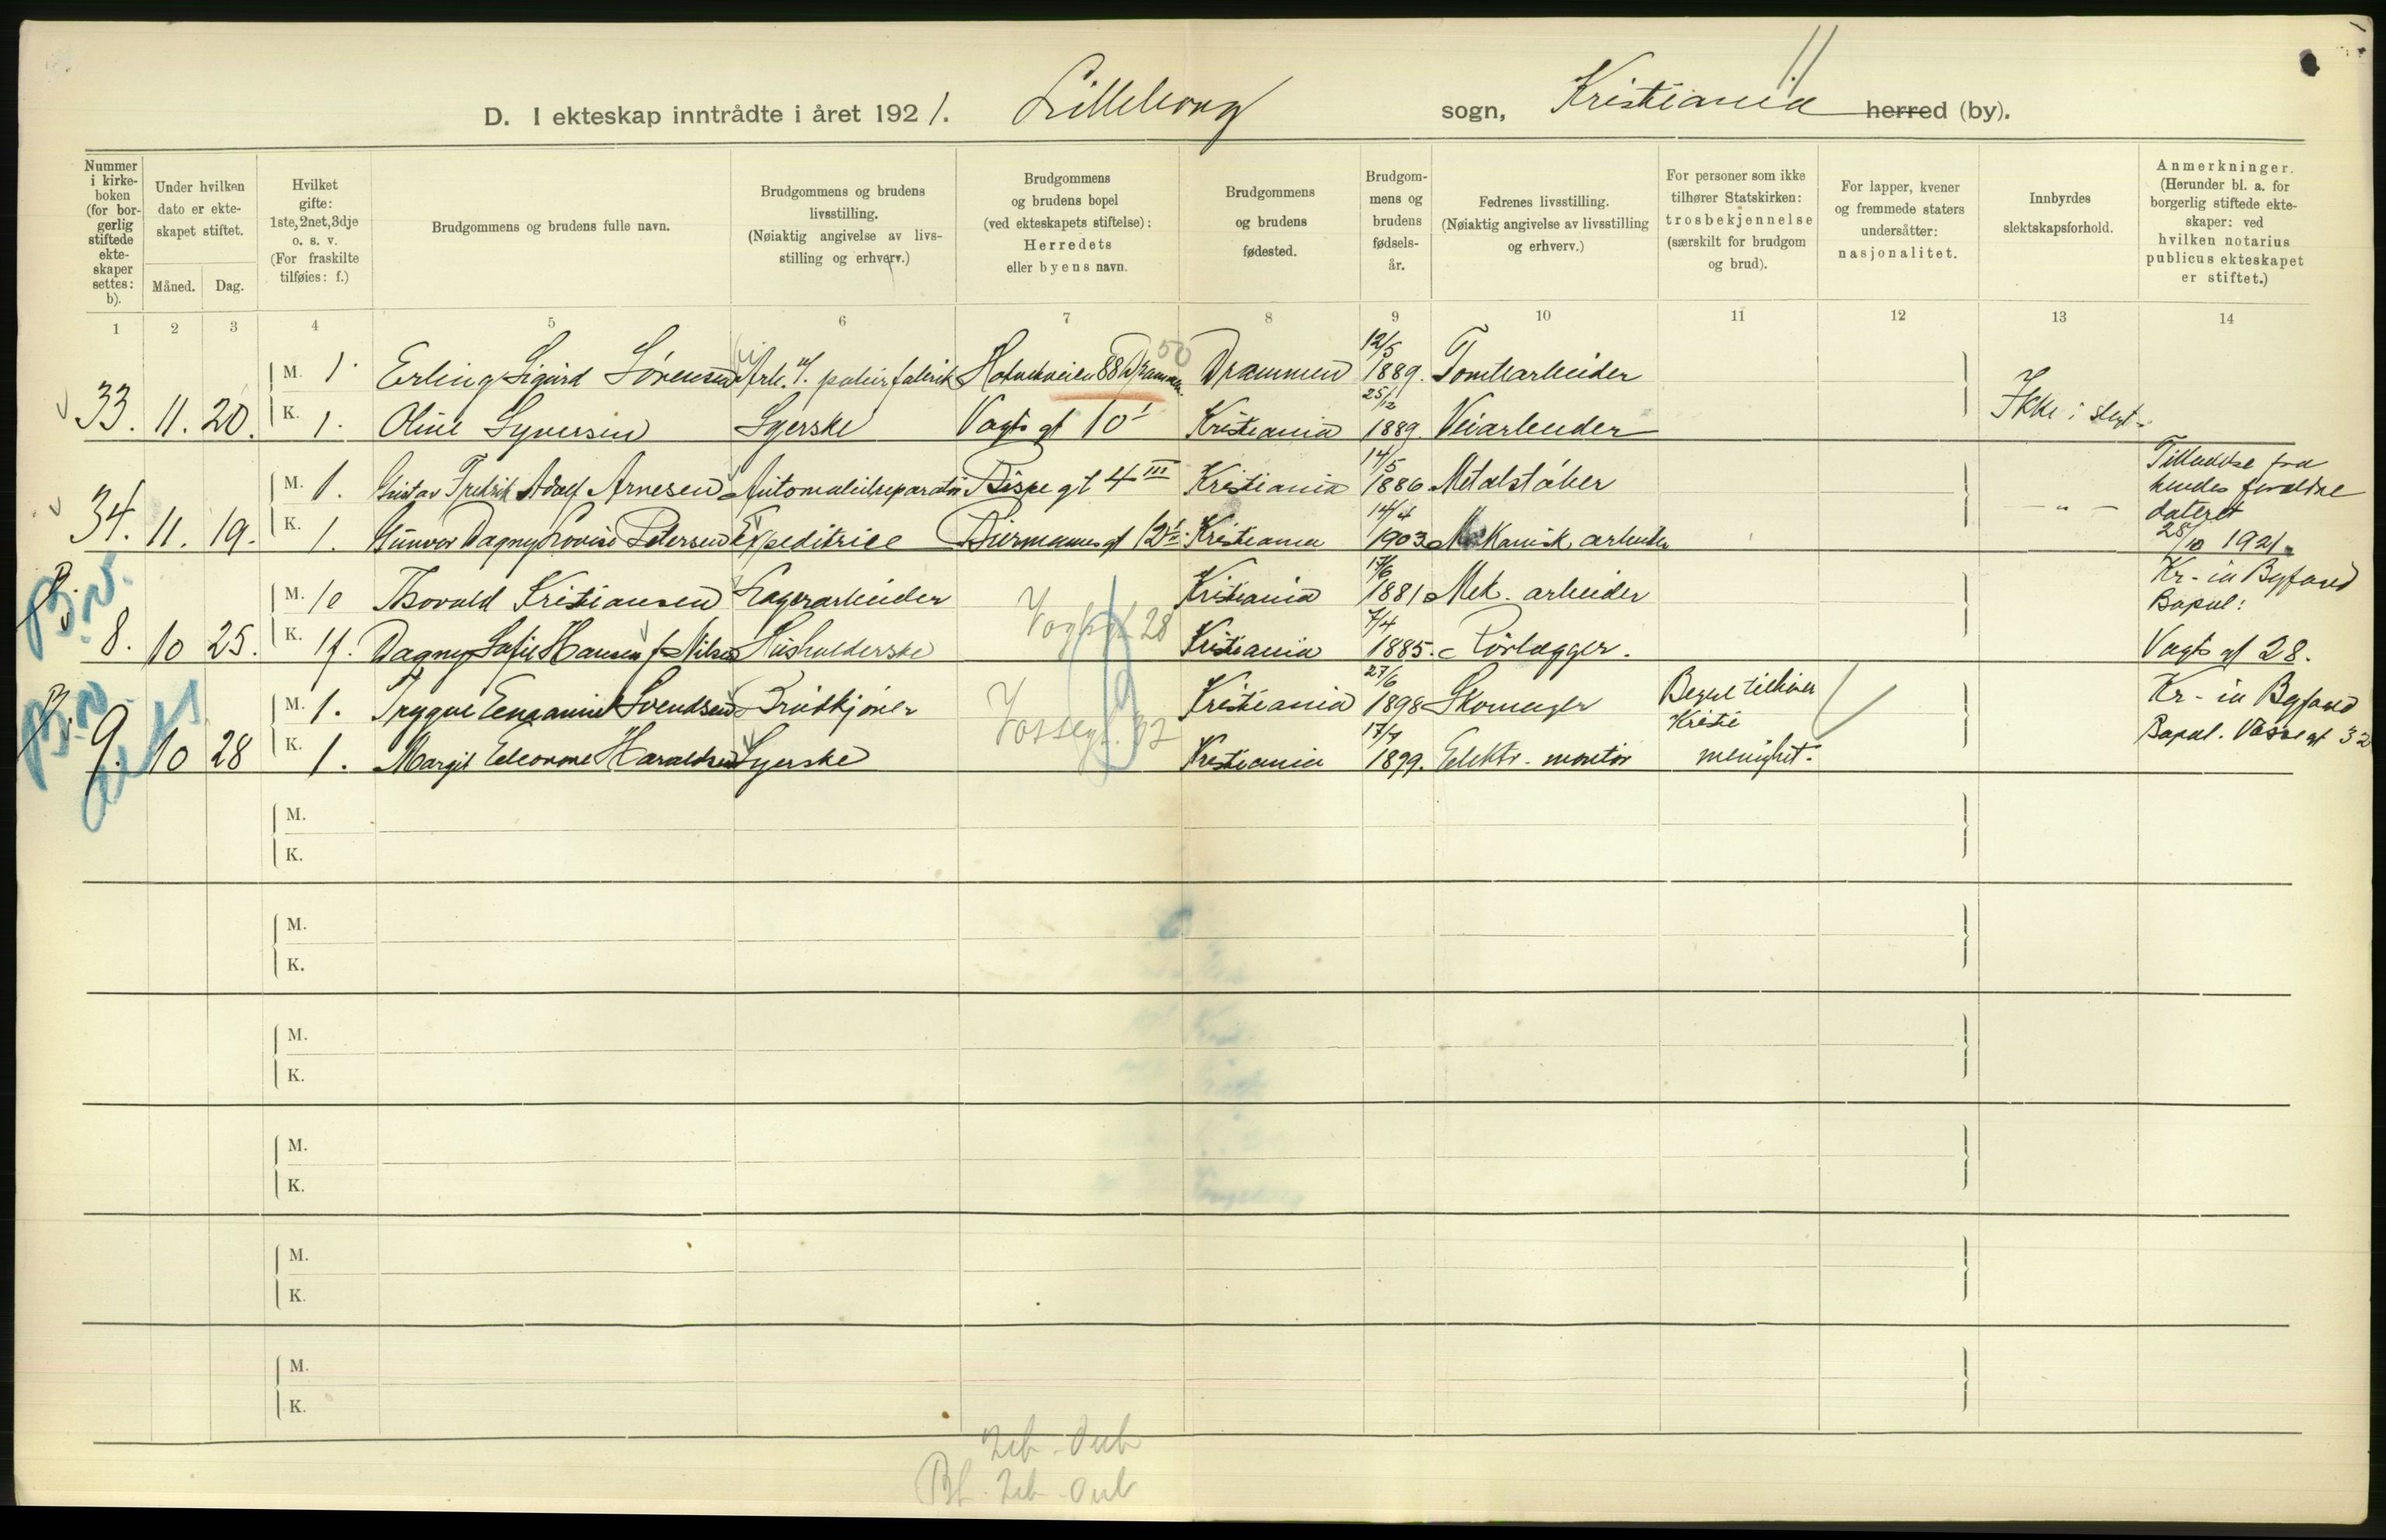 D. I ekteskap inntrådte i året 1921. Lilleborg sogn, Kristiania herred (by).
Nummer i kirkeboken (for borgerlig stiftede ekteskaper settes: b).
Under hvilken dato er ekteskapet stiftet.
Måned. Dag.
Hvilket gifte: 1ste, 2net, 3dje o. s. v. (For fraskilte tilføies: f.)
Brudgommens og brudens fulle navn.
Brudgommens og brudens livsstilling. (Nøiaktig angivelse av livsstilling og erhverv.)
Brudgommens og brudens bopel (ved ekteskapets stiftelse): Herredets eller byens navn.
Brudgommens og brudens fødested.
Brudgommens og brudens fødselsår.
Fedrenes livsstilling. (Nøiaktig angivelse av livsstilling og erhverv.)
For personer som ikke tilhører Statskirken: trosbekjennelse (særskilt for brudgom og brud).
For lapper, kvener og fremmede staters undersåtter: nasjonalitet.
Innbyrdes slektskapsforhold.
Anmerkninger. (Herunder bl. a. for borgerlig stiftede ekteskaper: ved hvilken notarius publicus ekteskapet er stiftet.)
1 2 3 4 5 6 7 8 9 10 11 12 13 14
M. 1. Erling Sigurd Sørensen Arb. v. papirfabrik 88 Drammen 50 Drammen 12/5 1889. Tomtearbeider
33. 11. 20. K. 1. Oline Syversen Syerske Vogts gt 10 I Kristiania 25/12 1889. Veiarbeider Ikke i slegt.
M. 1. Gustav Fredrik Adolf Arnesen Automobilreparatør Bispe gt 4 III Kristiania 14/5 1886 Metalstøber Tilladelse fra hendes forældre
34. 11. 19. K. 1. Gunvor Dagny Lovise Petersen Expeditrice Biermanns gt 12 Kristiania 14/4 1903 Mekanisk arbeider — „ — dateret 28/10 1921.
B. M. 1e Thorvald Kristiansen Lagerarbeider Kristiania 17/6 1881 Mek. arbeider Kr-ia Byfoged Bopæl:
8. 10 25. K. 1f. Dagny Sofie Hansen f. Nilsen Husholderske Vogtsgt. 28 Kristiania 7/4 1885. Rørlægger. Vogts gt 28.
B. M. 1. Trygve Svendsen Brødkjører Kristiania 27/6 1898 Skomager Begge tilhører Kr-ia Byfoged
9. 10 28 K. 1. Margit Eleonore Haraldsen Syerske Vossegt. 32 Kristiania 17/7 1899. Elektr. montør Kristi menighet. Bopæl. Vosse gt 32
M.
K.
M.
K.
M.
K.
M.
K.
M.
K.
M.
K.